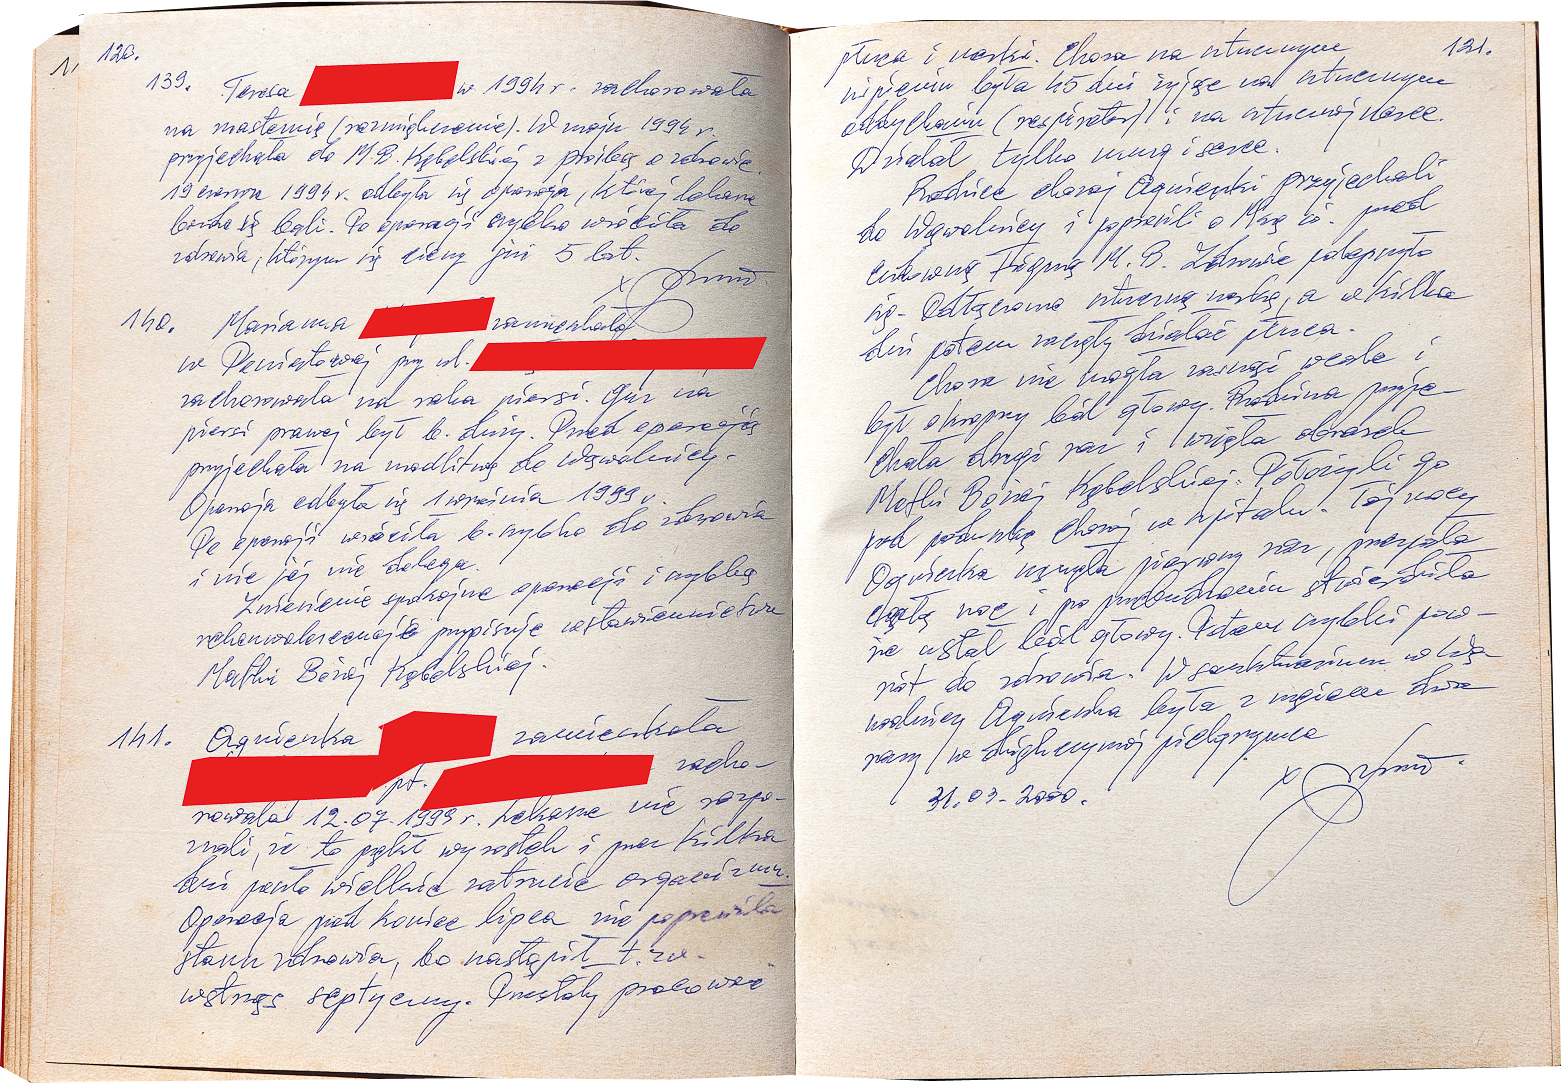 120.
139. Teresa w 1994 r. zachorowała
na miastemię (rozmiękczenie). W maju 1994 r.
przyjechała do M.B. Kębelskiej z prośbą o zdrowie.
19 czerwca 1994 r. odbyła się operacja, której lekarze
bardzo się bali. Po operacji szybko wróciła do
zdrowia, którym się cieszy już 5 lat.
x
140. Marianna zamieszkała
w Poniatowej przy ul.
zachorowała na raka piersi. Guz na
piersi prawej był b. duży. Przed operacją
przyjechała na modlitwę do Wąwolnicy.
Operacja odbyła się 1 września 1999 r.
Po operacji wróciła b. szybko do zdrowia
i nic jej nie dolega.
Zniesienie spokojne operacji i szybką
rekonwalescencję przypisuje wstawiennictwu
Matki Bożej Kębelskiej.
141. Agnieszka zamieszkała
pt. zacho-
rowała 12.07.1999 r. Lekarze nie rozpo-
znali, że to pękł wyrostek i przez kilka
dni poszło wielkie zatrucie organizmu.
Operacja pod koniec lipca nie poprawiła
stanu zdrowia, bo nastąpił t.zw.
wstrząs septyczny. Przestały pracować
121.
płuca i nerki. Chora na sztucznym
uśpieniu była 45 dni żyjąc na sztucznym
oddychaniu (respirator) i na sztucznej nerce.
Działał tylko mózg i serce.
Rodzice chorej Agnieszki przyjechali
do Wąwolnicy i poprosili o Mszę św. przed
cudowną Figurą M.B. Zdrowie polepszyło
się. Odłączono sztuczną nerkę, a w kilka
dni potem zaczęły działać płuca.
Chora nie mogła zasnąć wcale i
był okropny ból głowy. Rodzina przyje-
chała drugi raz i wzięła obrazek
Matki Bożej Kębelskiej. Położyli go
pod poduszkę chorej w szpitalu. Tej nocy
Agnieszka usnęła pierwszy raz, przespała
całą noc i po przebudzeniu stwierdziła
że ustał ból głowy. Potem szybki pow-
rót do zdrowia. W sanktuarium w Wą-
wolnicy Agnieszka była z mężem dwa
razy, w dziękczynnej pielgrzymce
x
31.03.2000.